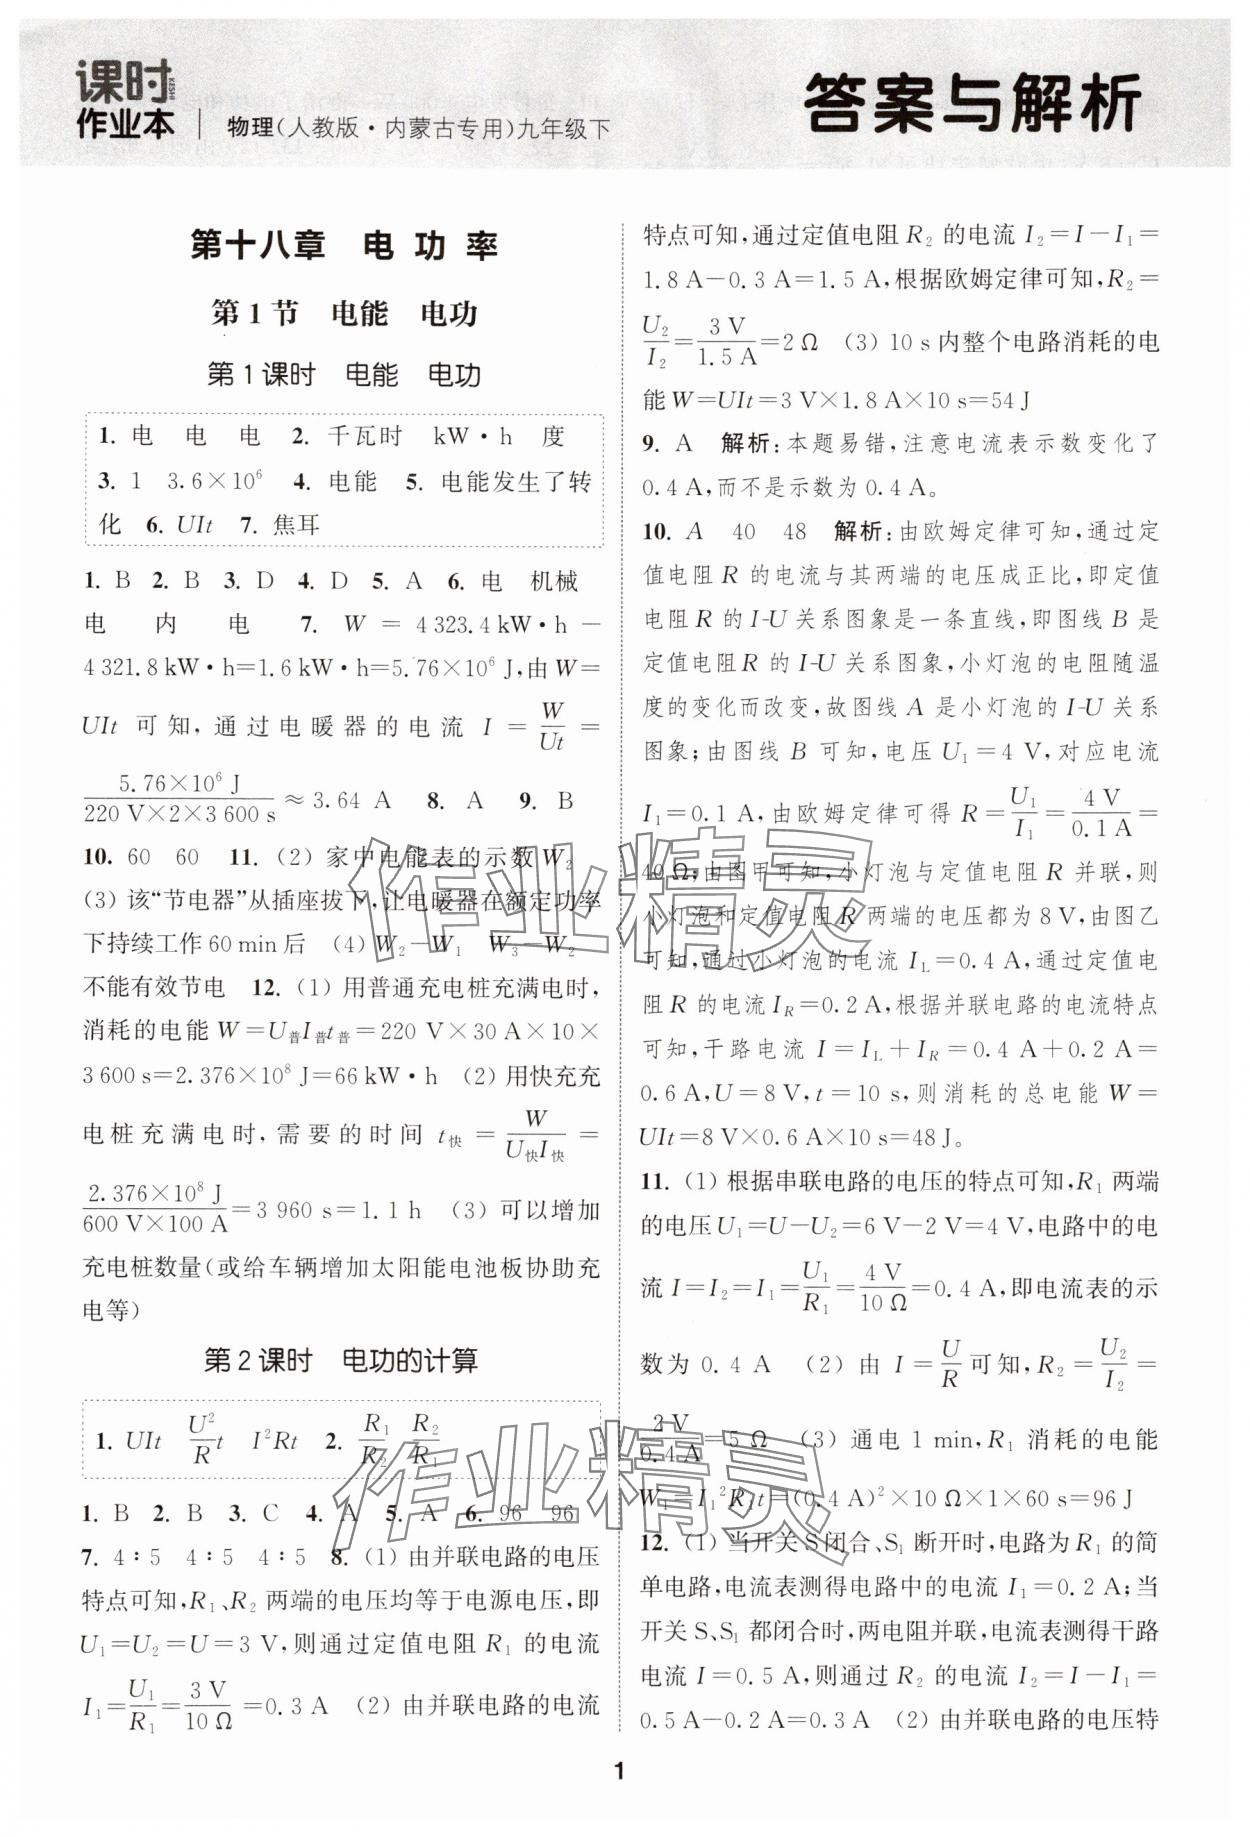 课时 KESHI
作业本
物理(人教版·内蒙古专用)九年级下
答案与解析
第十八章 电功率
第1节 电能 电功
第1课时 电能 电功
1. 电 电 电 2. 千瓦时 kW·h 度
3. 1 3.6×10⁶ 4. 电能 5. 电能发生了转
化 6. UIt 7. 焦耳
1. B 2. B 3. D 4. D 5. A 6. 电 机械
电 内 电 7. W = 4 323.4 kW·h −
4 321.8 kW·h=1.6 kW·h=5.76×10⁶ J,由W=
UIt 可知,通过电暖器的电流 I = W/Ut =
5.76×10⁶ J/(220 V×2×3 600 s) ≈ 3.64 A 8. A 9. B
10. 60 60 11. (2) 家中电能表的示数W₂
(3) 该“节电器”从插座拔下,让电暖器在额定功率
下持续工作60 min后 (4) W₂−W₁ W₃−W₂
不能有效节电 12. (1) 用普通充电桩充满电时,
消耗的电能W=U普I普t普=220 V×30 A×10×
3 600 s=2.376×10⁸ J=66 kW·h (2) 用快充充
电桩充满电时,需要的时间 t快 = W/(U快I快) =
2.376×10⁸ J/(600 V×100 A)=3 960 s=1.1 h (3) 可以增加
充电桩数量(或给车辆增加太阳能电池板协助充
电等)
第2课时 电功的计算
1. UIt U²/R t I²Rt 2. R₁/R₂ R₂/R₁
1. B 2. B 3. C 4. A 5. A 6. 96 96
7. 4∶5 4∶5 4∶5 8. (1) 由并联电路的电压
特点可知,R₁、R₂ 两端的电压均等于电源电压,即
U₁=U₂=U=3 V,则通过定值电阻 R₁ 的电流
I₁=U₁/R₁=3 V/10 Ω=0.3 A (2) 由并联电路的电流
特点可知,通过定值电阻 R₂ 的电流 I₂=I−I₁=
1.8 A−0.3 A=1.5 A,根据欧姆定律可知,R₂=
U₂/I₂=3 V/1.5 A=2 Ω (3) 10 s内整个电路消耗的电
能W=UIt=3 V×1.8 A×10 s=54 J
9. A 解析:本题易错,注意电流表示数变化了
0.4 A,而不是示数为0.4 A。
10. A 40 48 解析:由欧姆定律可知,通过定
值电阻 R 的电流与其两端的电压成正比,即定值
电阻 R 的 I-U 关系图象是一条直线,即图线 B 是
定值电阻R 的 I-U 关系图象,小灯泡的电阻随温
度的变化而改变,故图线 A 是小灯泡的 I-U 关系
图象;由图线 B 可知,电压U₁=4 V,对应电流
I₁=0.1 A,由欧姆定律可得 R=U₁/I₁=4 V/0.1 A=
40 Ω;由图甲可知,小灯泡与定值电阻 R 并联,则
小灯泡和定值电阻 R 两端的电压都为 8 V,由图乙
可知,通过小灯泡的电流 I_L=0.4 A,通过定值电
阻 R 的电流 I_R=0.2 A,根据并联电路的电流特点
可知,干路电流 I=I_L+I_R=0.4 A+0.2 A=
0.6 A,U=8 V,t=10 s,则消耗的总电能 W=
UIt=8 V×0.6 A×10 s=48 J。
11. (1) 根据串联电路的电压的特点可知,R₁ 两端
的电压U₁=U−U₂=6 V−2 V=4 V,电路中的电
流 I=I₂=I₁=U₁/R₁=4 V/10 Ω=0.4 A,即电流表的示
数为 0.4 A (2) 由 I=U/R 可知,R₂=U₂/I₂=
2 V/0.4 A=5 Ω (3) 通电 1 min,R₁ 消耗的电能
W₁=I₁²R₁t=(0.4 A)²×10 Ω×1×60 s=96 J
12. (1) 当开关S闭合、S₁ 断开时,电路为 R₁ 的简
单电路,电流表测得电路中的电流 I₁=0.2 A;当
开关 S、S₁ 都闭合时,两电阻并联,电流表测得干路
电流 I=0.5 A,则通过 R₂ 的电流 I₂=I−I₁=
0.5 A−0.2 A=0.3 A (2) 由并联电路的电压特
作业精灵
作业精灵
1